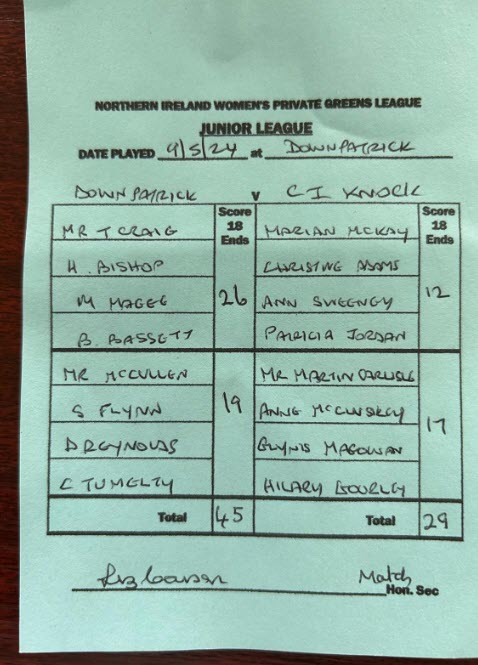 NORTHERN IRELAND WOMEN'S PRIVATE GREENS LEAGUE
JUNIOR LEAGUE
DATE PLAYED 9/5/24 at DOWNPATRICK
DOWNPATRICK v C I KNOCK
Score 18 Ends Score 18 Ends
MR T CRAIG MARIAN MCKAY
H. BISHOP CHRISTINE ADAMS
M MAGEE 26 ANN SWEENEY 12
B. BASSETT PATRICIA JORDAN
MR MCCULLEN MR MARTIN CARLISLE
S FLYNN 19 ANNE MCCLUSKEY 17
D REYNOLDS GLYNIS MAGOWAN
C TUMELTY HILARY GOURLEY
Total 45 Total 29
Match
Hon. Sec